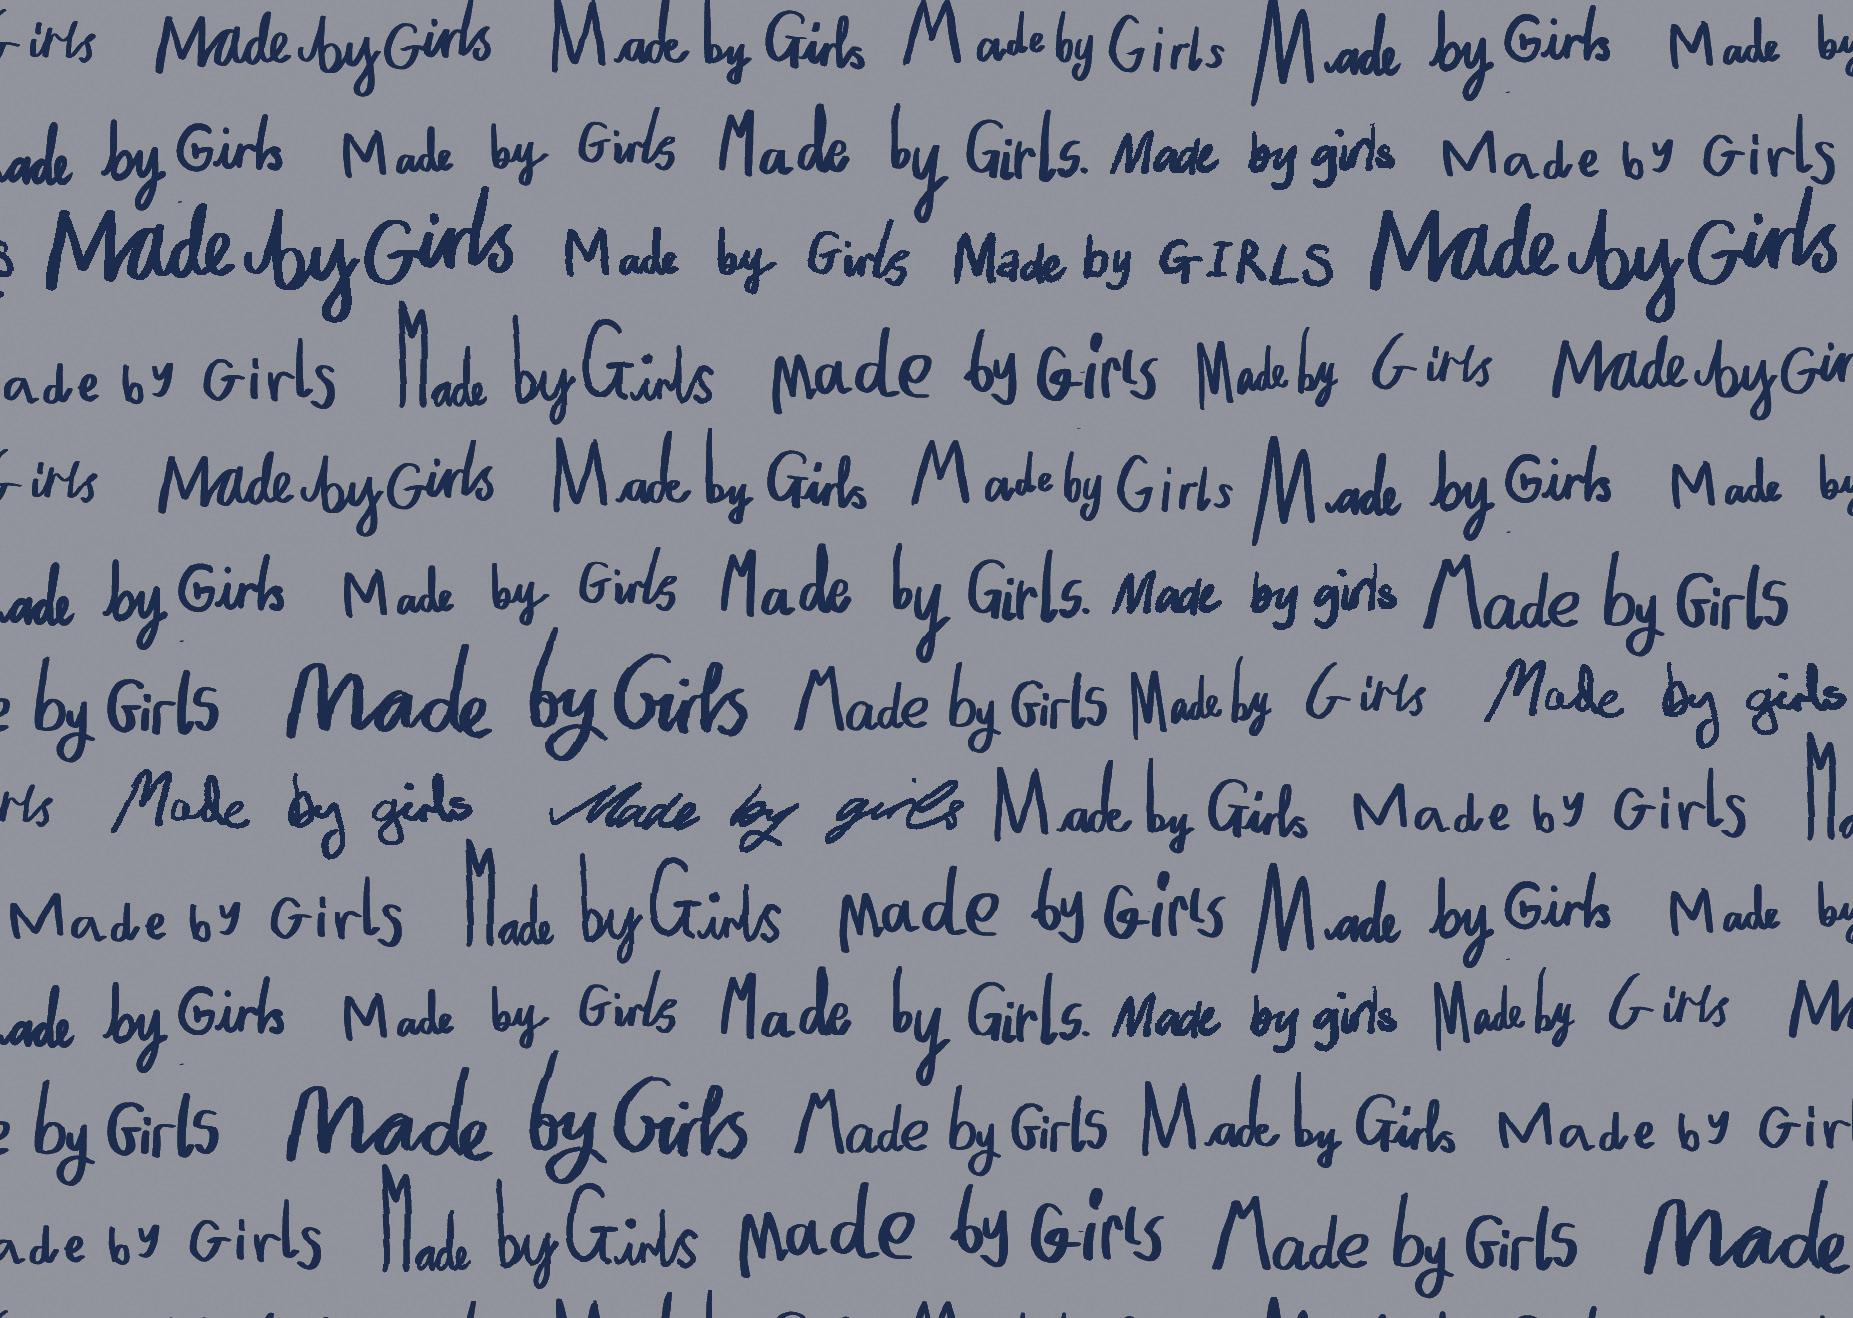 Girls Made by Girls Made by Girls Made by Girls Made by Girls Made by
ade by Girls Made by Girls Made by Girls. Made by girls Made by Girls
s Made by Girls Made by Girls Made by GIRLS Made by Girls
ade by Girls Made by Girls made by Girls Made by Girls Made by Gir
Girls Made by Girls Made by Girls Made by Girls Made by Girls Made by
ade by Girls Made by Girls Made by Girls. Made by girls Made by Girls
e by Girls Made by Girls Made by Girls Made by Girls Made by girls
rls Made by girls Made by girls Made by Girls Made by Girls Ma
Made by Girls Made by Girls made by Girls Made by Girls Made by
ade by Girls Made by Girls Made by Girls. Made by girls Made by Girls M
e by Girls Made by Girls Made by Girls Made by Girls Made by Girl
ade by Girls Made by Girls made by Girls Made by Girls Made